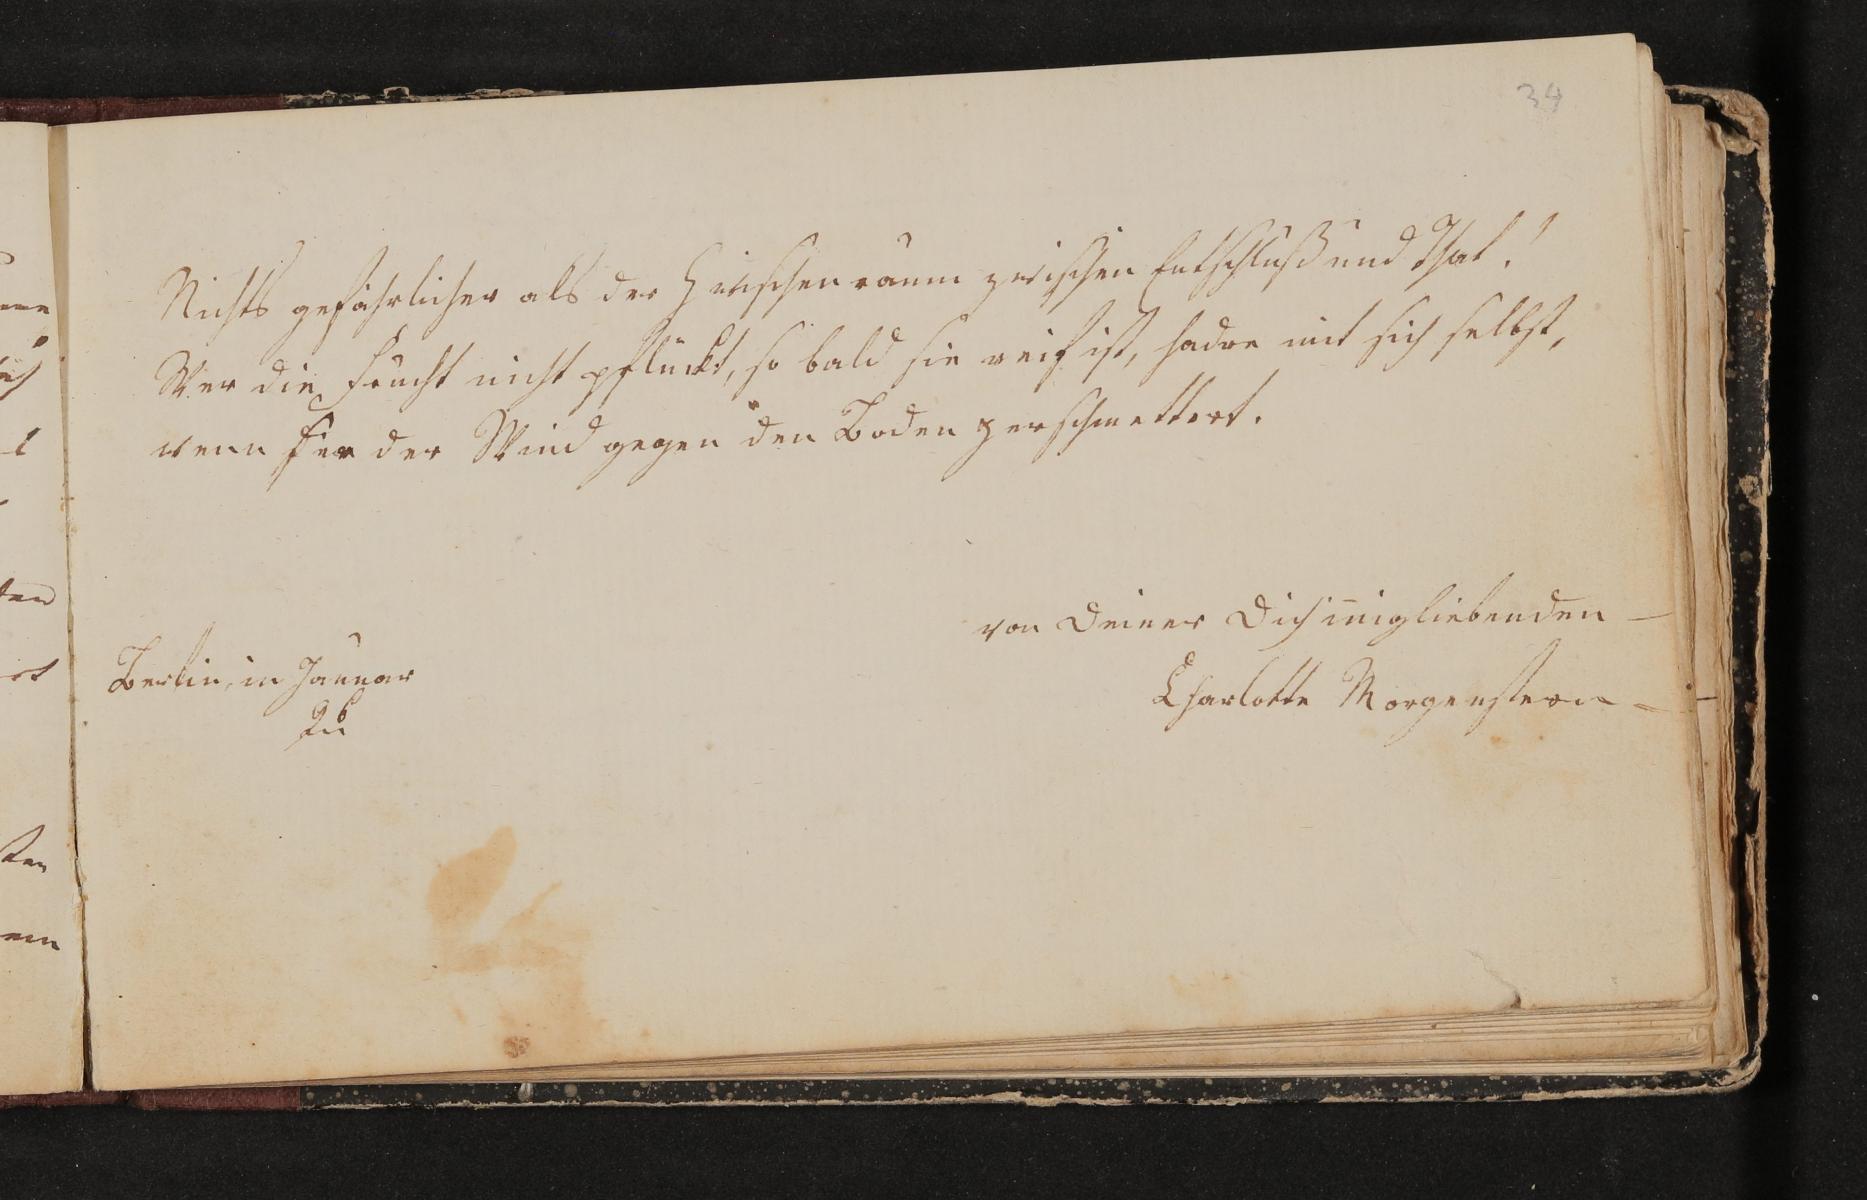 34
Nichts gefährlicher als der Zwischenraum zwischen Entschluß und That!
Wer die Frucht nicht pflückt, so bald sie reif ist, hadre mit sich selbst,
wenn sie der Wind gegen den Boden zerschmettert.
von Deiner Dich iñig liebenden
Berlin, in Januar
Charlotte Morgenstern